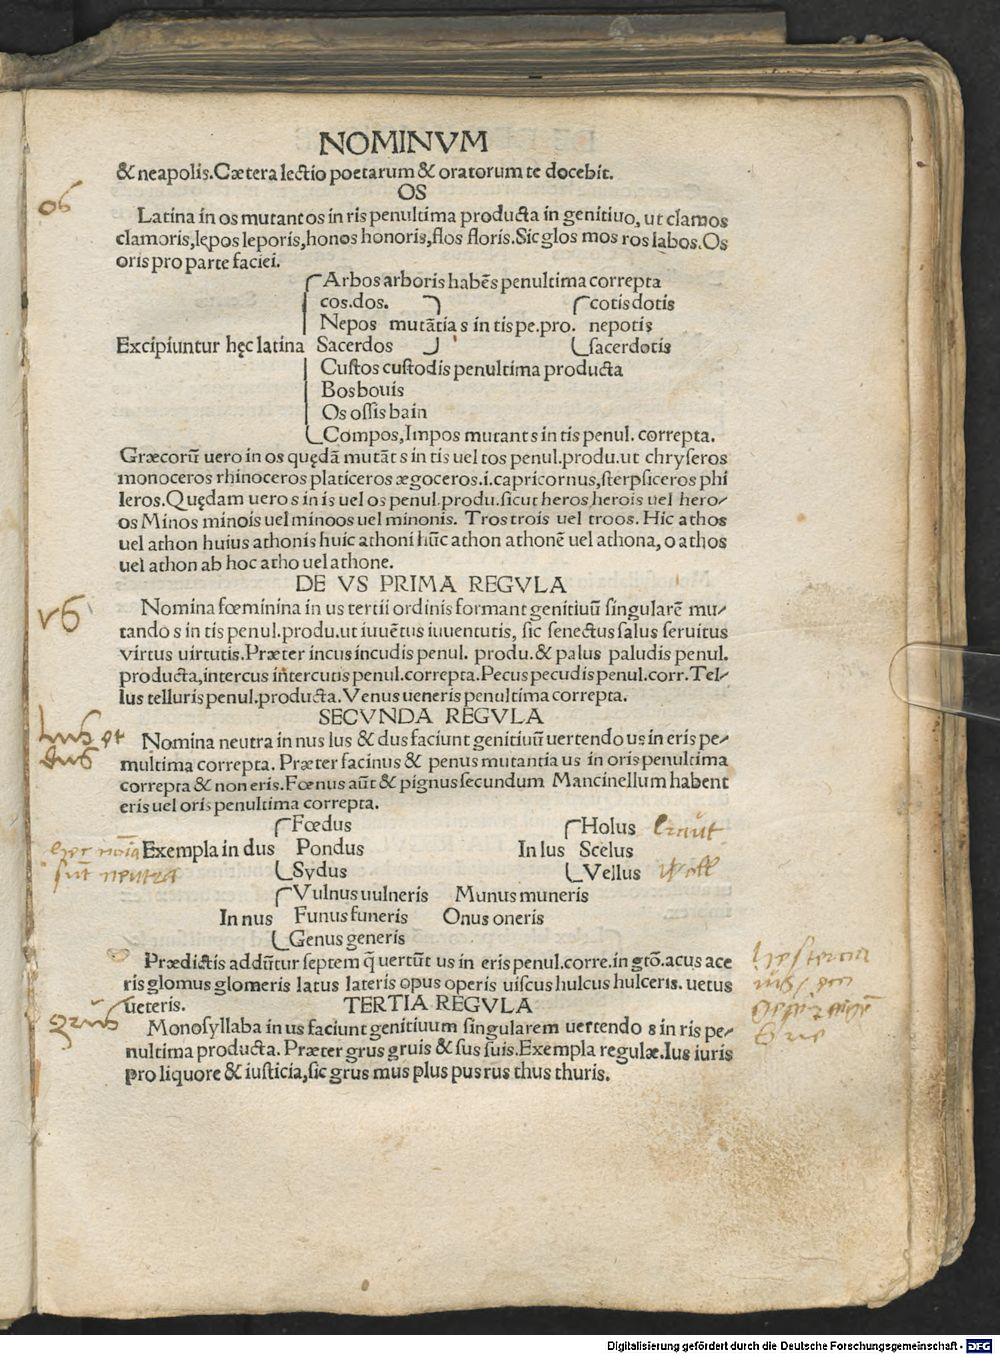 NOMINVM
& neapolis. Cætera lectio poetarum & oratorum te docebit.
OS
os
Latina in os mutant os in ris penultima producta in genitiuo, ut clamos
clamoris, lępos leporis, honos honoris, flos floris. Sic glos mos ros labos. Os
oris pro parte faciei.
Arbos arboris habēs penultima correpta
cos. dos. cotis dotis
Nepos mutātia s in tis pe. pro. nepotis
Excipiuntur hęc latina Sacerdos sacerdotis
Custos custodis penultima producta
Bos bouis
Os ossis bain
Compos, Impos mutant s in tis penul. correpta.
Græcorū uero in os quędā mutāt s in tis uel tos penul. produ. ut chryseros
monoceros rhinoceros platiceros ægoceros .i. capricornus, sterpsiceros phi
leros. Quędam uero s in is uel os penul. produ. sicut heros herois uel hero-
os Minos minois uel minoos uel minonis. Tros trois uel troos. Hic athos
uel athon huius athonis huic athoni hūc athon athonē uel athona, o athos
uel athon ab hoc atho uel athone.
DE VS PRIMA REGVLA
vs
Nomina fœminina in us tertii ordinis formant genitiuū singularē mu-
tando s in tis penul. produ. ut iuuētus iuuentutis, sic senectus salus seruitus
virtus uirtutis. Præter incus incudis penul. produ. & palus paludis penul.
producta, intercus intercutis penul. correpta. Pecus pecudis penul. corr. Tel-
lus telluris penul. producta. Venus ueneris penultima correpta.
SECVNDA REGVLA
lus et
dus
Nomina neutra in nus lus & dus faciunt genitiuū uertendo us in eris pe-
multima correpta. Præter facinus & penus mutantia us in oris penultima
correpta & non eris. Fœnus aūt & pignus secundum Mancinellum habent
eris uel oris penultima correpta.
Fœdus Holus Kraut
hec noīa
sūt neutra
Exempla in dus Pondus In lus Scelus
Sydus Vellus Woll
Vulnus uulneris Munus muneris
In nus Funus funeris Onus oneris
Genus generis
Prædictis addūtur septem q̄ uertūt us in eris penul. corre. in gtō. acus ace
ris glomus glomeris latus lateris opus operis uiscus hulcus hulceris. uetus
ueteris. TERTIA REGVLA
grus
Monosyllaba in us faciunt genitiuum singularem uertendo s in ris pe-
nultima producta. Præter grus gruis & sus suis. Exempla regulæ. Ius iuris
pro liquore & iusticia, sic grus mus plus pus rus thus thuris.
Digitalisierung gefördert durch die Deutsche Forschungsgemeinschaft - DFG